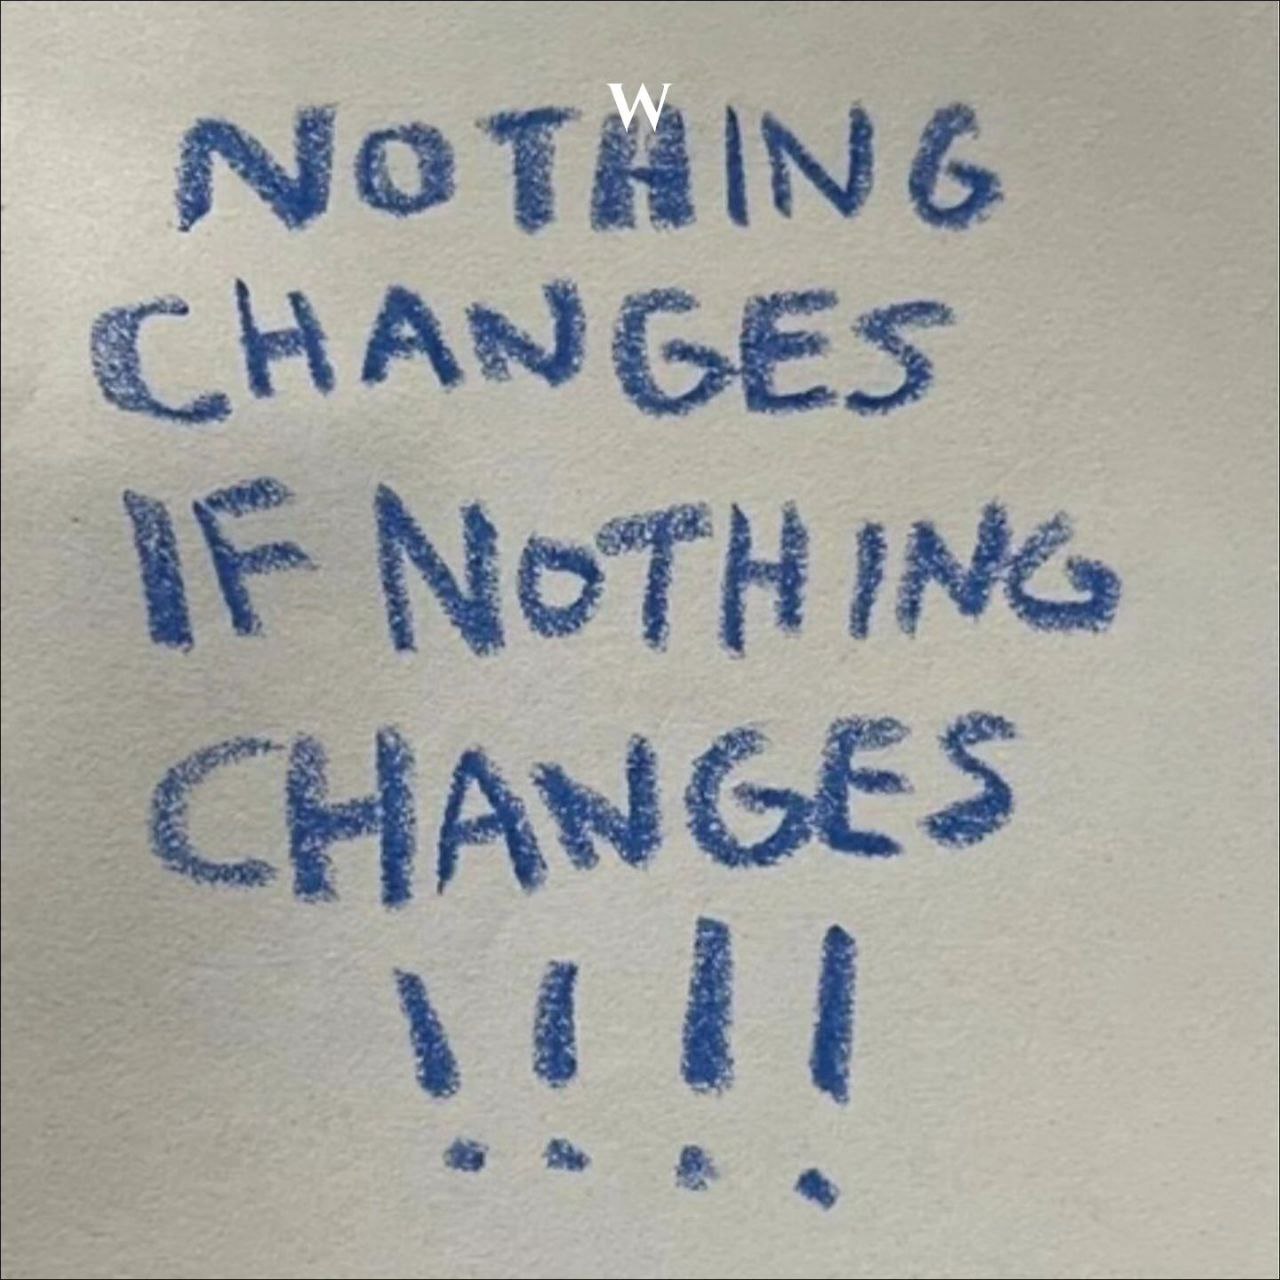 W
NOTHING
CHANGES
IF NOTHING
CHANGES
!!!!